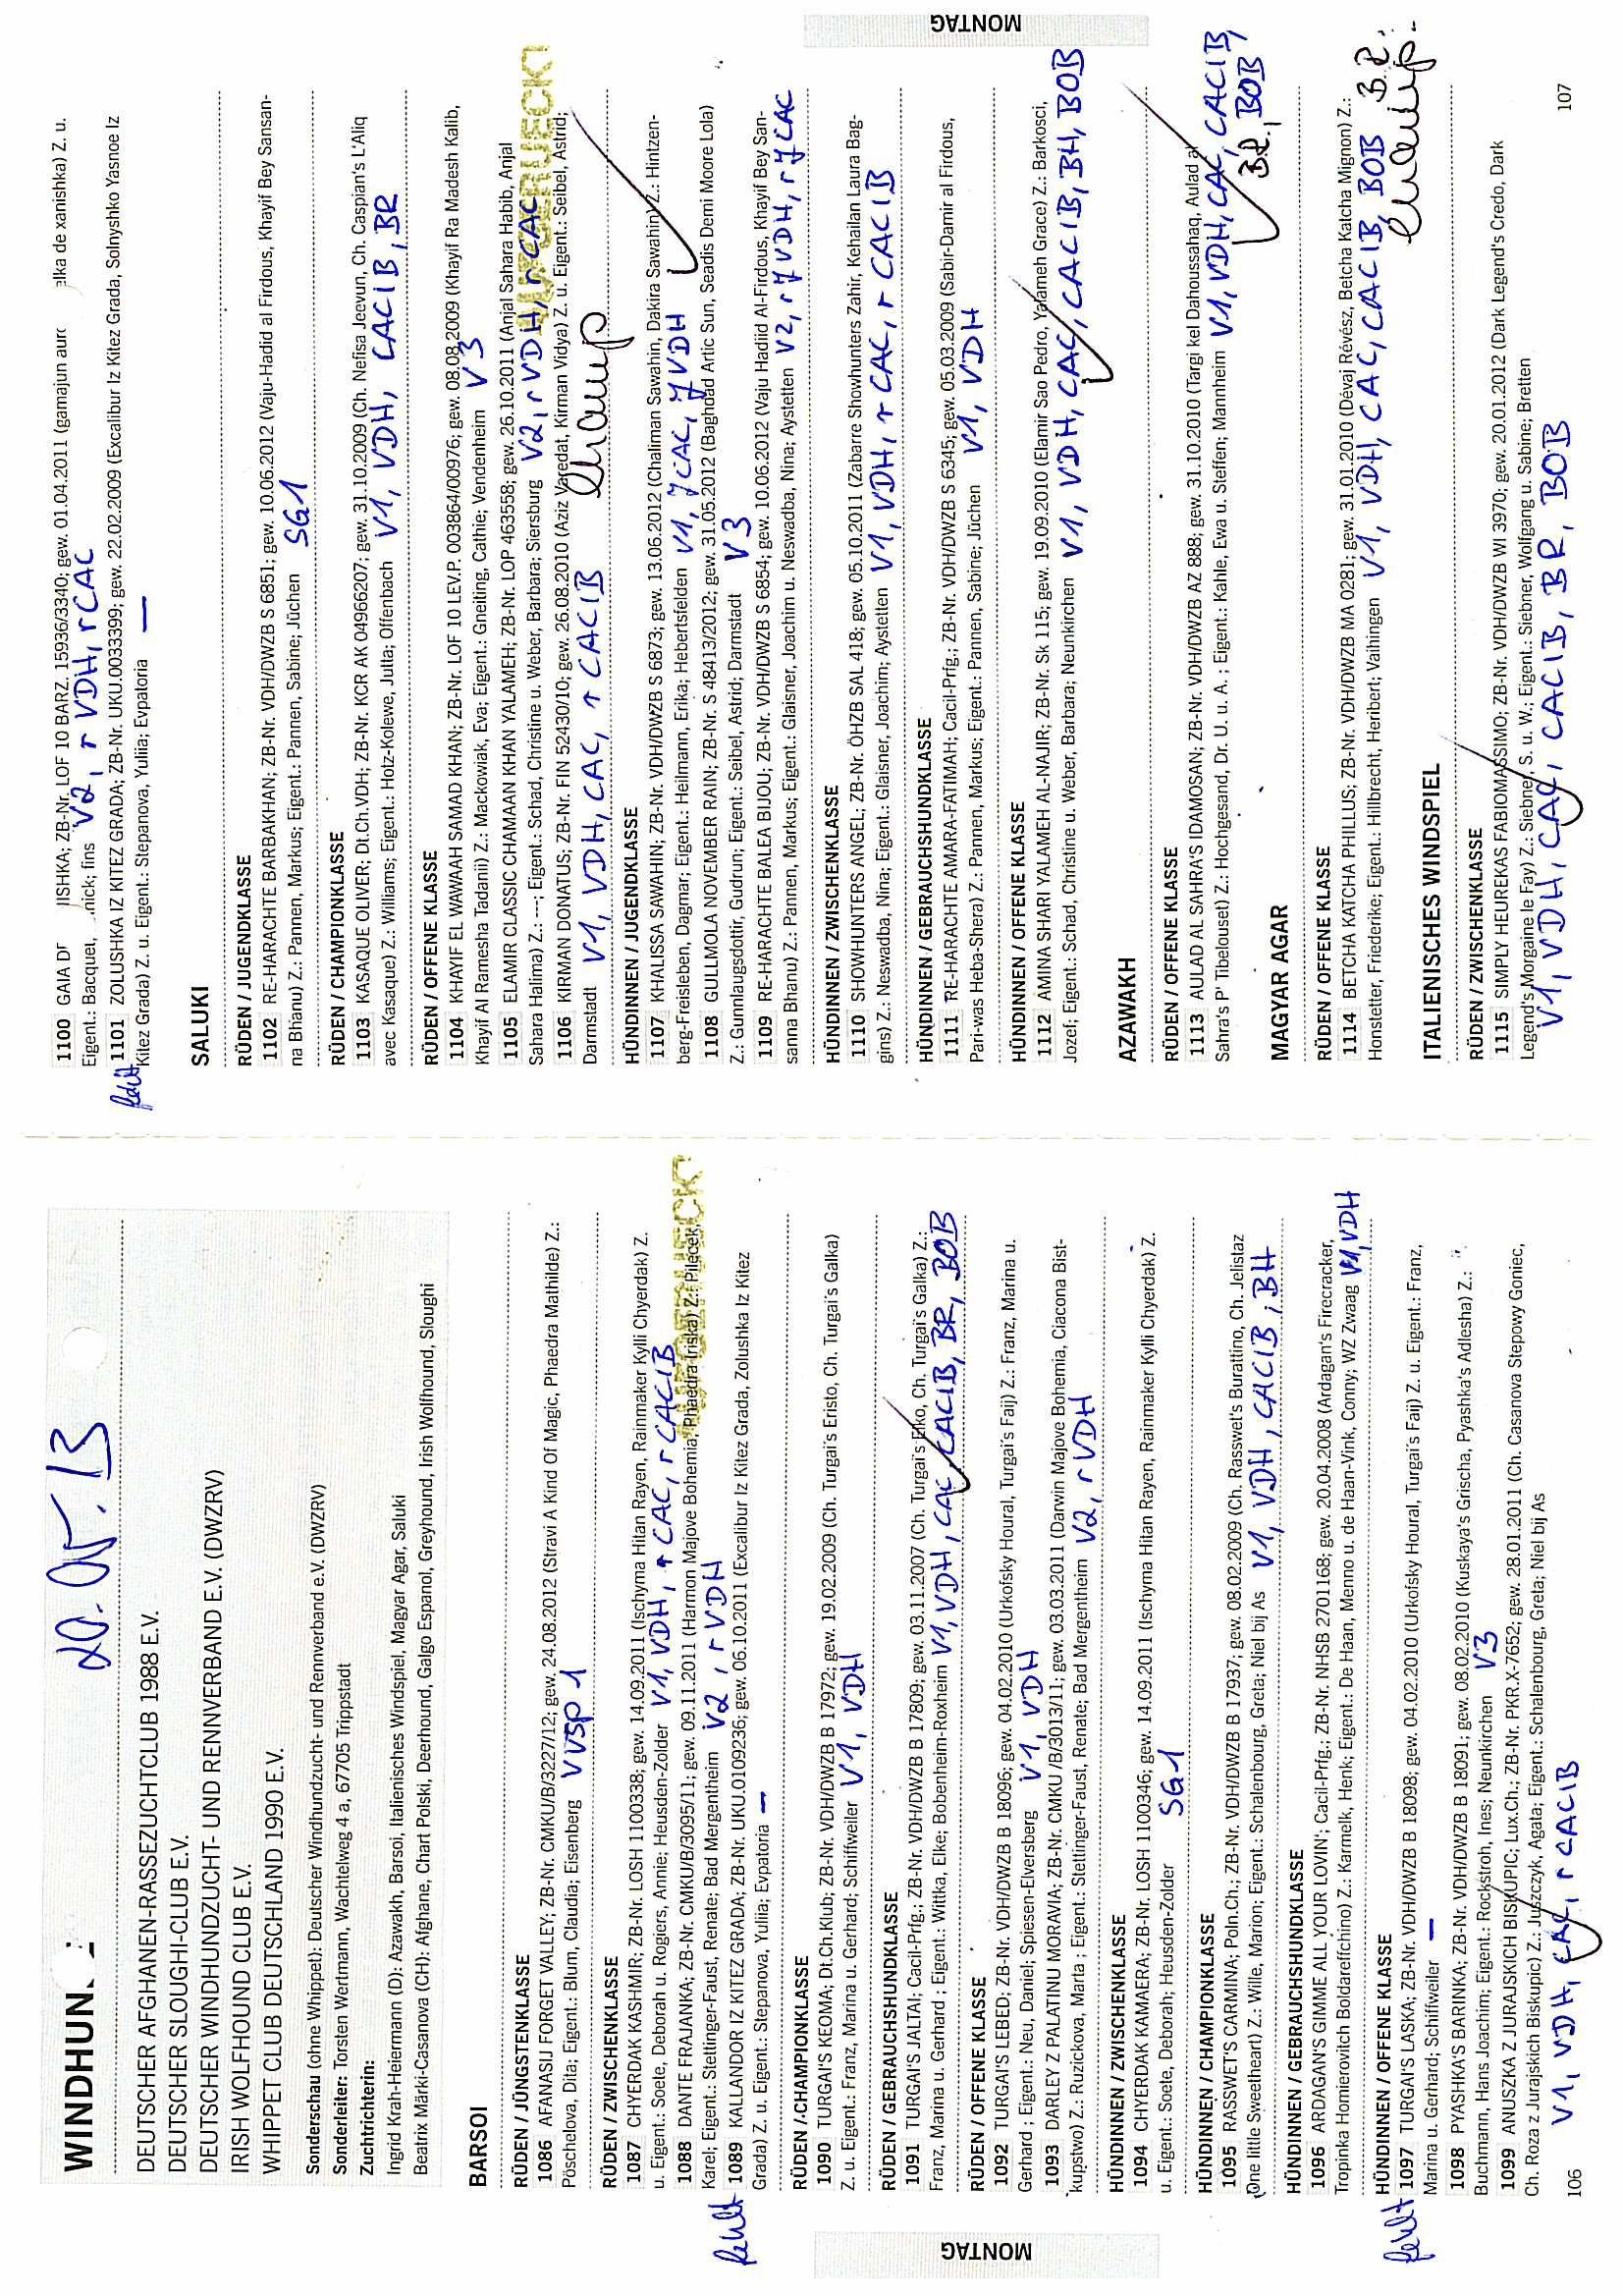 WINDHUN
20.05.13
DEUTSCHER AFGHANEN-RASSEZUCHTCLUB 1988 E.V.
DEUTSCHER SLOUGHI-CLUB E.V.
DEUTSCHER WINDHUNDZUCHT- UND RENNVERBAND E.V. (DWZRV)
IRISH WOLFHOUND CLUB E.V.
WHIPPET CLUB DEUTSCHLAND 1990 E.V.
Sonderschau (ohne Whippet): Deutscher Windhundzucht- und Rennverband e.V. (DWZRV)
Sonderleiter: Torsten Wertmann, Wachtelweg 4 a, 67705 Trippstadt
Zuchtrichterin:
Ingrid Krah-Heiermann (D): Azawakh, Barsoi, Italienisches Windspiel, Magyar Agar, Saluki
Beatrix Märki-Casanova (CH): Afghane, Chart Polski, Deerhound, Galgo Espanol, Greyhound, Irish Wolfhound, Sloughi
BARSOI
RÜDEN / JÜNGSTENKLASSE
1086 AFANASIJ FORGET VALLEY; ZB-Nr. CMKU/B/3227/12; gew. 24.08.2012 (Stravi A Kind Of Magic, Phaedra Mathilde) Z.:
Pöschelova, Dita; Eigent.: Blum, Claudia; Eisenberg VVSP 1
RÜDEN / ZWISCHENKLASSE
1087 CHYERDAK KASHMIR; ZB-Nr. LOSH 1100338; gew. 14.09.2011 (Ischyma Hitan Rayen, Rainmaker Kylli Chyerdak) Z.
u. Eigent.: Soete, Deborah u. Rogers, Annie; Heusden-Zolder V1, VDH, r CAC, r CACIB
1088 DANTE FRAJANKA; ZB-Nr. CMKU/B/3095/11; gew. 09.11.2011 (Harmon Majove Bohemia, Phaedra Iriska) Z.: Pilecek,
Karel; Eigent.: Stettinger-Faust, Renate; Bad Mergentheim V2, r VDH
fehlt 1089 KALLANDOR IZ KITEZ GRADA; ZB-Nr. UKU.0109236; gew. 06.10.2011 (Excalibur Iz Kitez Grada, Zolushka Iz Kitez
Grada) Z. u. Eigent.: Stepanova, Yuliia; Evpatoria —
RÜDEN / CHAMPIONKLASSE
1090 TURGAI'S KEOMA; Dt.Ch.Klub; ZB-Nr. VDH/DWZB B 17972; gew. 19.02.2009 (Ch. Turgai's Eristo, Ch. Turgai's Galka)
Z. u. Eigent.: Franz, Marina u. Gerhard; Schiffweiler V1, VDH
RÜDEN / GEBRAUCHSHUNDKLASSE
1091 TURGAI'S JALTAI; Cacil-Prfg.; ZB-Nr. VDH/DWZB B 17809; gew. 03.11.2007 (Ch. Turgai's Elko, Ch. Turgai's Galka) Z.:
Franz, Marina u. Gerhard ; Eigent.: Wittka, Elke; Bobenheim-Roxheim V1, VDH, CAC, CACIB, BR, BOB
RÜDEN / OFFENE KLASSE
1092 TURGAI'S LEBED; ZB-Nr. VDH/DWZB B 18096; gew. 04.02.2010 (Urkofsky Houral, Turgai's Faij) Z.: Franz, Marina u.
Gerhard ; Eigent.: Neu, Daniel; Spiesen-Elversberg V1, VDH
1093 DARLEY Z PALATINU MORAVIA; ZB-Nr. CMKU /B/3013/11; gew. 03.03.2011 (Darwin Majove Bohemia, Ciacona Bist-
kupstwo) Z.: Ruzickova, Marta ; Eigent.: Stettinger-Faust, Renate; Bad Mergentheim V2, r VDH
HÜNDINNEN / ZWISCHENKLASSE
1094 CHYERDAK KAMERA; ZB-Nr. LOSH 1100346; gew. 14.09.2011 (Ischyma Hitan Rayen, Rainmaker Kylli Chyerdak) Z.
u. Eigent.: Soete, Deborah; Heusden-Zolder SG1
HÜNDINNEN / CHAMPIONKLASSE
1095 RASSWET'S CARMINA; Poln.Ch.; ZB-Nr. VDH/DWZB B 17937; gew. 08.02.2009 (Ch. Rasswet's Burattino, Ch. Jelistaz
One little Sweetheart) Z.: Wille, Marion; Eigent.: Schalenbourg, Greta; Niel bij As V1, VDH, CACIB, BH
HÜNDINNEN / GEBRAUCHSHUNDKLASSE
1096 ARDAGAN'S GIMME ALL YOUR LOVIN'; Cacil-Prfg.; ZB-Nr. NHSB 2701168; gew. 20.04.2008 (Ardagan's Firecracker,
Tropinka Homierovitch Boldareffchino) Z.: Karmelk, Henk; Eigent.: De Haan, Menno u. de Haan-Vink, Conny; WZ Zwaag V1, VDH
HÜNDINNEN / OFFENE KLASSE
fehlt 1097 TURGAI'S LASKA; ZB-Nr. VDH/DWZB B 18098; gew. 04.02.2010 (Urkofsky Houral, Turgai's Faij) Z. u. Eigent.: Franz,
Marina u. Gerhard; Schiffweiler —
1098 PYASHKA'S BARINKA; ZB-Nr. VDH/DWZB B 18091; gew. 08.02.2010 (Kuskaya's Grischa, Pyashka's Adlesha) Z.:
Buchmann, Hans Joachim; Eigent.: Rockstroh, Ines; Neunkirchen V3
1099 ANUSZKA Z JURAJSKICH BISKUPIC; Lux.Ch.; ZB-Nr. PKR.X-7652; gew. 28.01.2011 (Ch. Casanova Stepowy Goniec,
Ch. Roza z Jurajskich Biskupic) Z.: Juszczyk, Agata; Eigent.: Schalenbourg, Greta; Niel bij As
V1, VDH, CAC, r CACIB
106
MONTAG
1100 GAIA DE ISHKA; ZB-Nr. LOF 10 BARZ. 15936/3340; gew. 01.04.2011 (gamajun aur elka de xanishka) Z. u.
Eigent.: Bacquet, nick; fins V2, r VDH, rCAC
fehlt 1101 ZOLUSHKA IZ KITEZ GRADA; ZB-Nr. UKU.0033399; gew. 22.02.2009 (Excalibur Iz Kitez Grada, Solnyshko Yasnoe Iz
Kitez Grada) Z. u. Eigent.: Stepanova, Yuliia; Evpatoria —
SALUKI
RÜDEN / JUGENDKLASSE
1102 RE-HARACHTE BARBAKHAN; ZB-Nr. VDH/DWZB S 6851; gew. 10.06.2012 (Vaju-Hadid al Firdous, Khayif Bey Sansan-
na Bhanu) Z.: Pannen, Markus; Eigent.: Pannen, Sabine; Jüchen SG1
RÜDEN / CHAMPIONKLASSE
1103 KASAQUE OLIVER; Dt.Ch.VDH; ZB-Nr. KCR AK 04966207; gew. 31.10.2009 (Ch. Nefisa Jeevun, Ch. Caspian's L'Aliq
avec Kasaque) Z.: Williams; Eigent.: Hotz-Kolewe, Jutta; Offenbach V1, VDH, CACIB, BR
RÜDEN / OFFENE KLASSE
1104 KHAYIF EL WAWAAH SAMAD KHAN; ZB-Nr. LOF 10 LEV.P. 003864/00976; gew. 08.08.2009 (Khayif Ra Madesh Kalib,
Khayif Al Ramesha Tadanii) Z.: Mackowiak, Eva; Eigent.: Gneiting, Cathie; Vendenheim V3
1105 ELAMIR CLASSIC CHAMAAN KHAN YALAMEH; ZB-Nr. LOP 463558; gew. 26.10.2011 (Anjal Sahara Habib, Anjal
Sahara Halima) Z.: ---; Eigent.: Schad, Christine u. Weber, Barbara; Siersburg V2, r VDH, r CAC
1106 KIRMAN DONATUS; ZB-Nr. FIN 52430/10; gew. 26.08.2010 (Aziz Varedat, Kirman Vidya) Z. u. Eigent.: Seibel, Astrid;
Darmstadt V1, VDH, CAC, r CACIB
HÜNDINNEN / JUGENDKLASSE
1107 KHALISSA SAWAHIN; ZB-Nr. VDH/DWZB S 6873; gew. 13.06.2012 (Chaliman Sawahin, Dakira Sawahin) Z.: Hintzen-
berg-Freisleben, Dagmar; Eigent.: Heilmann, Erika; Hebertsfelden V1, JCAC, JVDH
1108 GULLMOLA NOVEMBER RAIN; ZB-Nr. S 48413/2012; gew. 31.05.2012 (Baghdad Artic Sun, Seadis Demi Moore Lola)
Z.: Gunnlaugsdottir, Gudrun; Eigent.: Seibel, Astrid; Darmstadt V3
1109 RE-HARACHTE BALEA BIJOU; ZB-Nr. VDH/DWZB S 6854; gew. 10.06.2012 (Vaju Hadiid Al-Firdous, Khayif Bey San-
sanna Bhanu) Z.: Pannen, Markus; Eigent.: Glaisner, Joachim u. Neswadba, Nina; Aystetten V2, rJVDH, rJCAC
HÜNDINNEN / ZWISCHENKLASSE
1110 SHOWHUNTERS ANGEL; ZB-Nr. ÖHZB SAL 418; gew. 05.10.2011 (Zabarre Showhunters Zahir, Kehailan Laura Bag-
gins) Z.: Neswadba, Nina; Eigent.: Glaisner, Joachim; Aystetten V1, VDH, r CAC, r CACIB
HÜNDINNEN / GEBRAUCHSHUNDKLASSE
1111 RE-HARACHTE AMARA-FATIMAH; Cacil-Prfg.; ZB-Nr. VDH/DWZB S 6345; gew. 05.03.2009 (Sabir-Damir al Firdous,
Pari-was Heba-Shera) Z.: Pannen, Markus; Eigent.: Pannen, Sabine; Jüchen V1, VDH
HÜNDINNEN / OFFENE KLASSE
1112 AMINA SHARI YALAMEH AL-NAJIR; ZB-Nr. Sk 115; gew. 19.09.2010 (Elamir Sao Pedro, Yalameh Grace) Z.: Barkosci,
Jozef; Eigent.: Schad, Christine u. Weber, Barbara; Neunkirchen V1, VDH, CAC, CACIB, BH, BOB
AZAWAKH
RÜDEN / OFFENE KLASSE
1113 AULAD AL SAHRA'S IDAMOSAN; ZB-Nr. VDH/DWZB AZ 888; gew. 31.10.2010 (Targi kel Dahoussahaq, Aulad al
Sahra's P' Tibelouset) Z.: Hochgesand, Dr. U. u. A. ; Eigent.: Kahle, Ewa u. Steffen; Mannheim V1, VDH, CAC, CACIB, BR, BOB
MAGYAR AGAR
RÜDEN / OFFENE KLASSE
1114 BETCHA KATCHA PHILLUS; ZB-Nr. VDH/DWZB MA 0281; gew. 31.01.2010 (Dévaj Révész, Betcha Katcha Mignon) Z.:
Honstetter, Friederike; Eigent.: Hillbrecht, Heribert; Vaihingen V1, VDH, CAC, CACIB, BOB B.R.
ITALIENISCHES WINDSPIEL
RÜDEN / ZWISCHENKLASSE
1115 SIMPLY HEUREKAS FABIOMASSIMO; ZB-Nr. VDH/DWZB WI 3970; gew. 20.01.2012 (Dark Legend's Credo, Dark
Legend's Morgaine le Fay) Z.: Siebner, S. u. W.; Eigent.: Siebner, Wolfgang u. Sabine; Bretten
V1, VDH, CAC, CACIB, BR, BOB
107
MONTAG